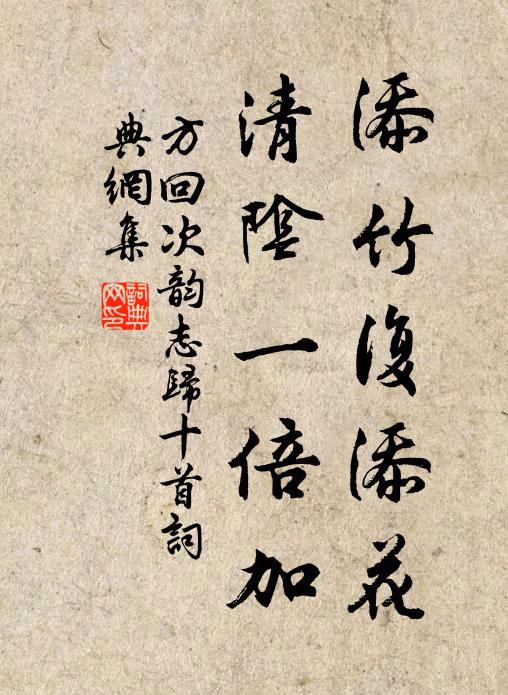 添竹復添花
清陰一倍加
方回次韵志歸十首詞
典網集
詞典網印